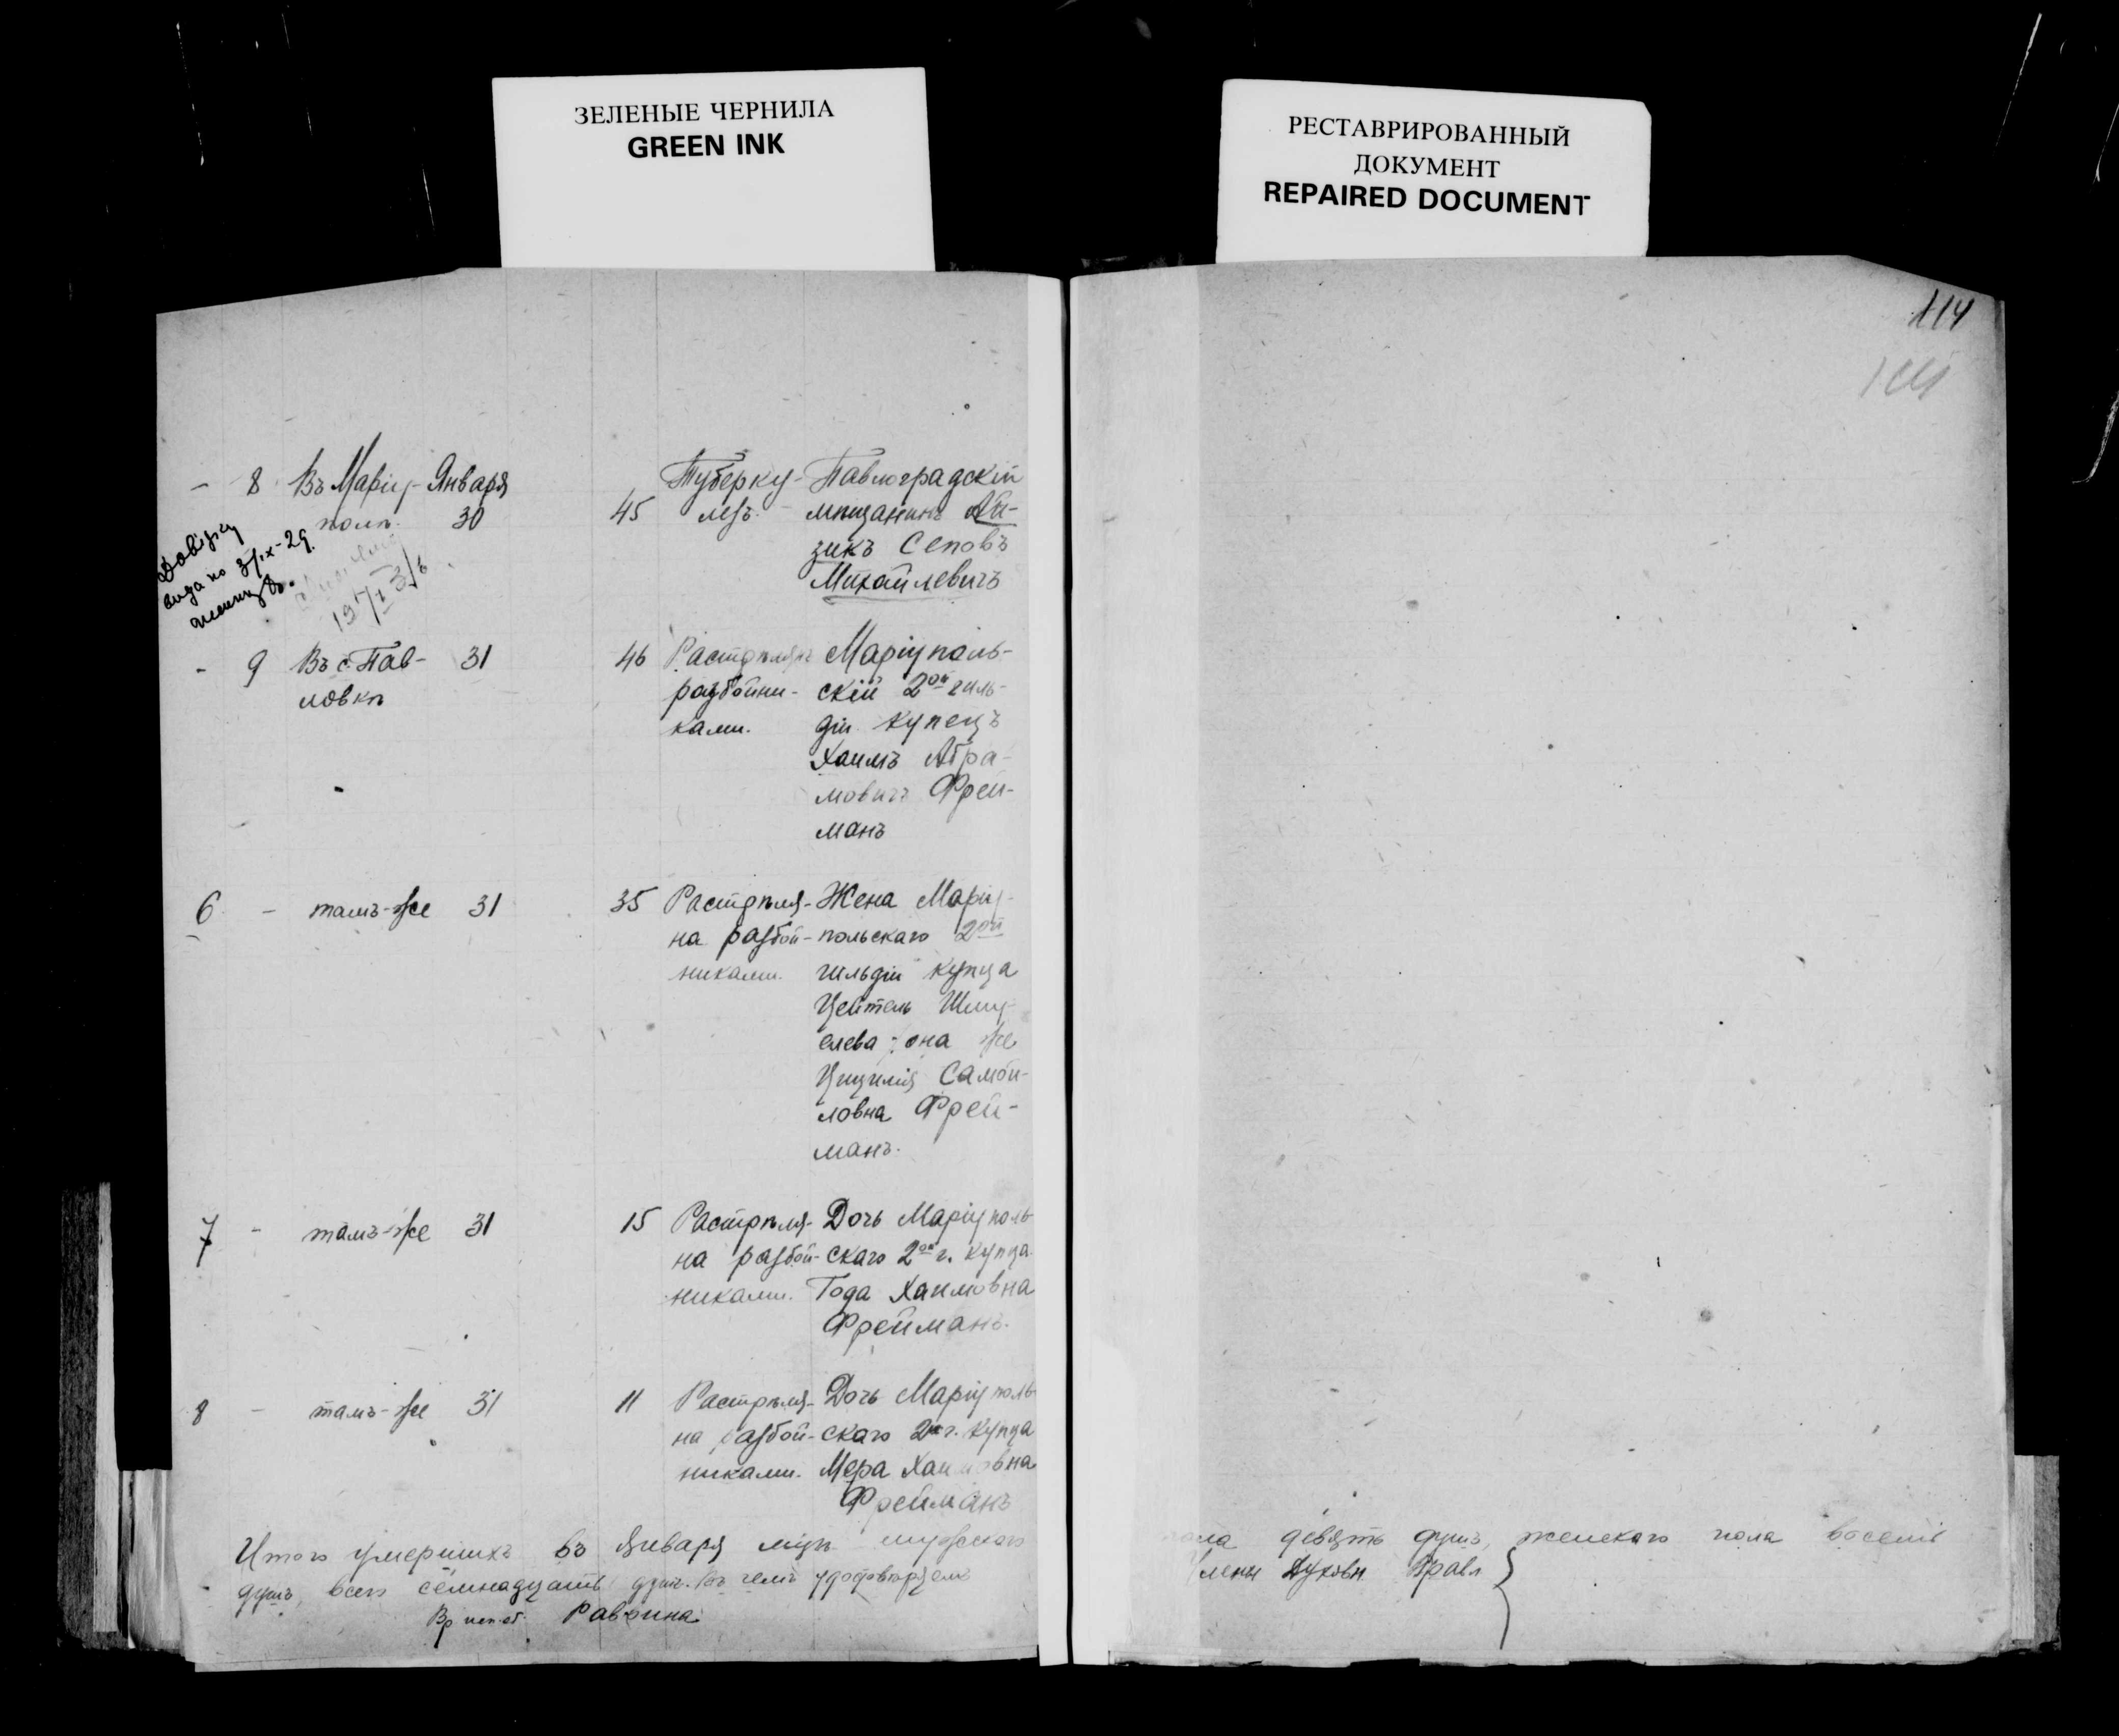 ЗЕЛЕНЫЕ ЧЕРНИЛА
GREEN INK
РЕСТАВРИРОВАННЫЙ
ДОКУМЕНТ
REPAIRED DOCUMENT
114
- 8 Въ Маріу- Января Туберку- Павлоградскій
полѣ. 30 45 лезъ. мѣщанинъ Ай-
зикъ Сеповъ
Михайлевичъ
Довідку
видано 3/IX-29.
- 9 Въ с. Пав- 31 46 Растрѣлянъ Маріуполь-
ловкѣ разбойни- скій 2ой гиль-
ками. діи купецъ
Хаимъ Абра-
мовичъ Фрей-
манъ
6 - тамъ-же 31 35 Растрѣля- Жена Маріу-
на разбой- польскаго 2ой
никами. гильдіи купца
Цейтель Шму-
елева, она же
Цицилія Самои-
ловна Фрей-
манъ.
7 - тамъ-же 31 15 Растрѣля- Дочь Маріуполь-
на разбой- скаго 2ой г. купца
никами. Года Хаимовна
Фрейманъ.
8 - тамъ-же 31 11 Растрѣля- Дочь Маріуполь-
на разбой- скаго 2й г. купца
никами. Мера Хаимовна
Фрейманъ
Итого умершихъ въ Января мцѣ мужского пола девять душъ, женскаго пола восемь
душъ, всего семнадцать душъ. Въ чемъ удостовѣряемъ Члены Духовн Правл
Вр исп. об. Раввина